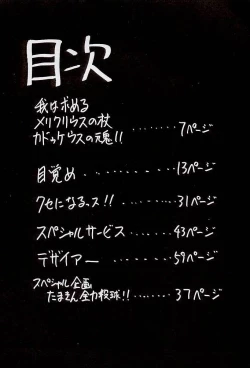 目次
我は求める
メリクリウスの杖
カドゥケウスの元鬼!! ........ 7ページ
目覚め ........ 13ページ
クセになるっス!! ........ 31ページ
スペシャルサービス ..... 43ページ
デザイアー ........ 59ページ
スペシャル企画
たまきん全力投球!! ........ 37ページ